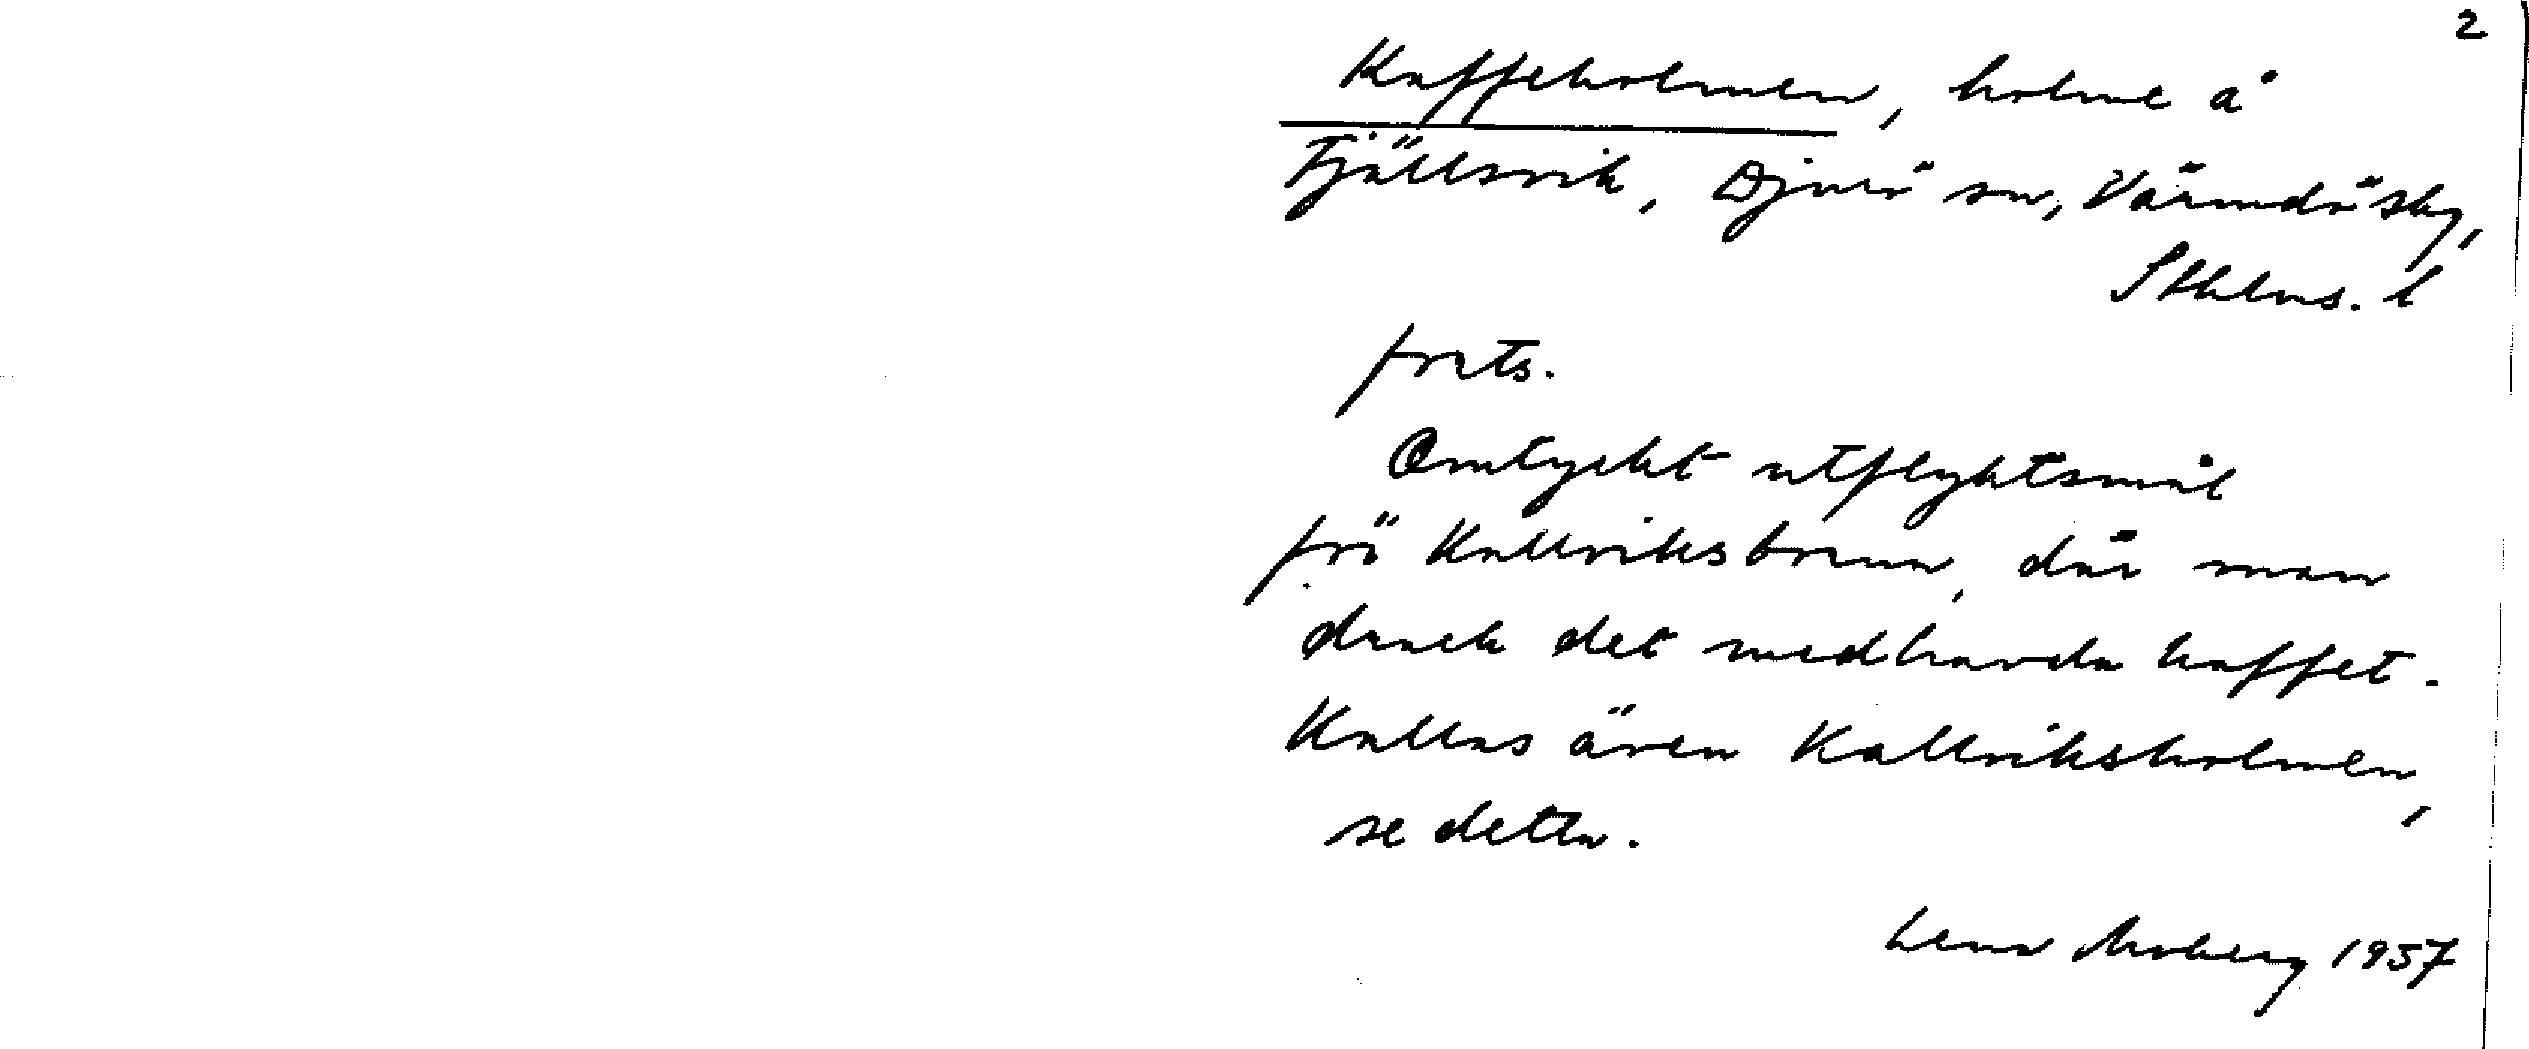 2
Kaffeholmen, holme å
Fjällsvik, Djurö sn, Värmdö skg,
Sthlms. l
forts.
Omtyckt utflyktsmål
frö Kallviksbrunn, där man
drack det medhavda kaffet.
Kallas även Kallviksholmen,
se detta.
Lena Moberg 1957